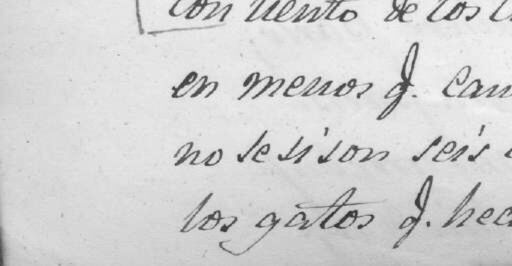 con viento de los
en menos q.
no se si son seis
los gatos q.